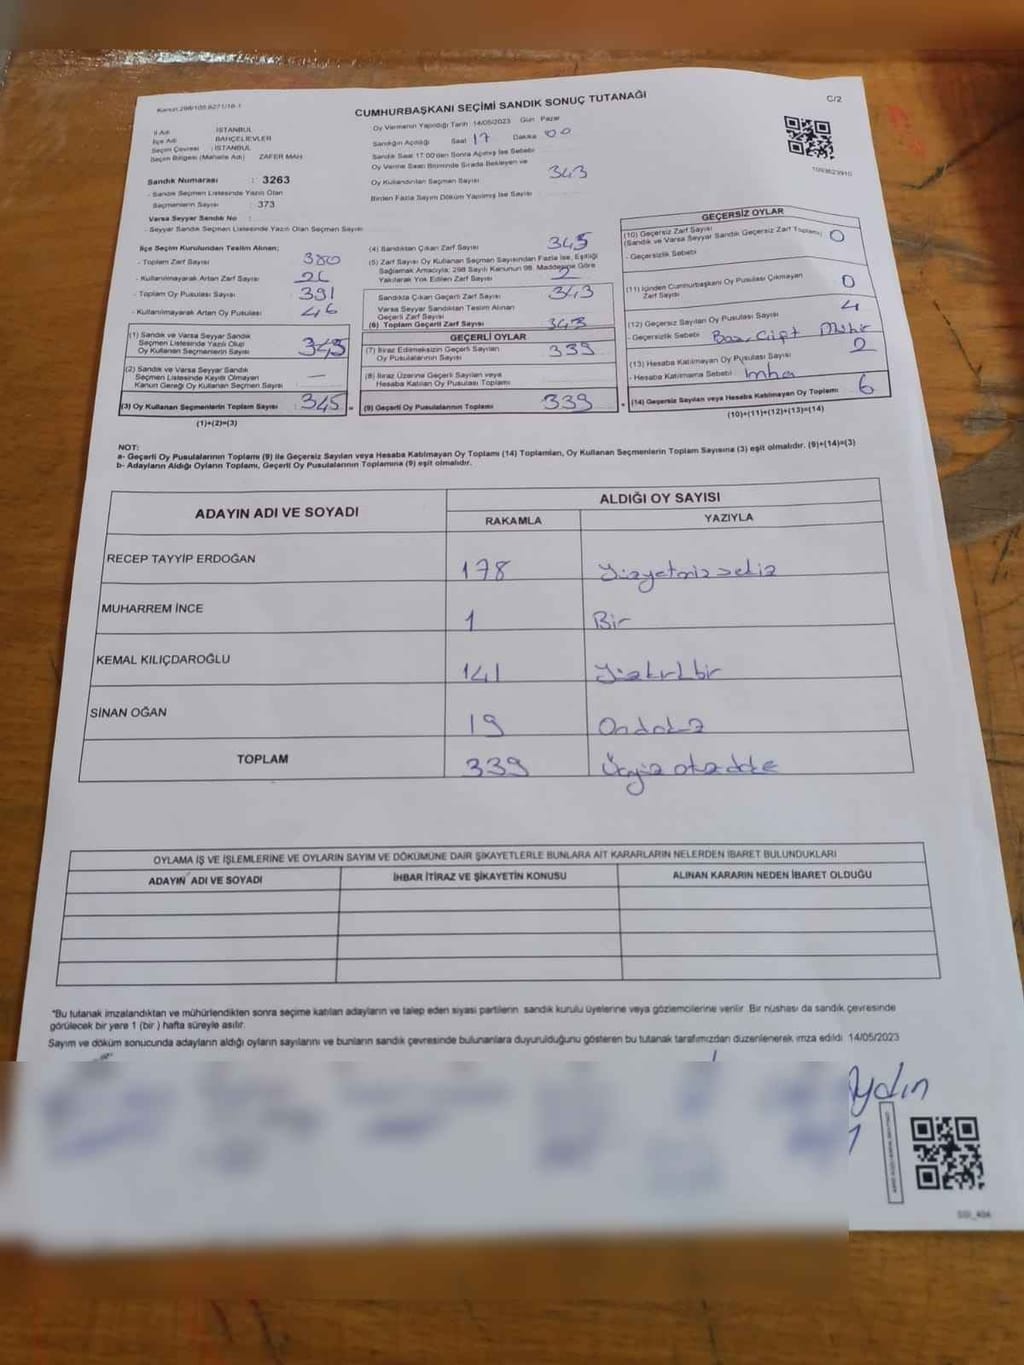 Kanun:298/105.6271/18-1
CUMHURBAŞKANI SEÇİMİ SANDIK SONUÇ TUTANAĞI
C/2
İl Adı : İSTANBUL
İlçe Adı : BAHÇELİEVLER
Seçim Çevresi : İSTANBUL
Seçim Bölgesi (Mahalle Adı) ZAFER MAH
Sandık Numarası : 3263
- Sandık Seçmen Listesinde Yazılı Olan
Seçmenlerin Sayısı : 373
Varsa Seyyar Sandık No :
- Seyyar Sandık Seçmen Listesinde Yazılı Olan Seçmen Sayısı
Oy Vermenin Yapıldığı Tarih 14/05/2023 Gün Pazar
Sandığın Açıldığı Saat 17 Dakika 00
Sandık Saat 17.00'den Sonra Açılmış İse Sebebi
Oy Verme Saati Bitiminde Sırada Bekleyen ve
Oy Kullandırılan Seçmen Sayısı 343
Birden Fazla Sayım Döküm Yapılmış İse Sayısı
1093623910
İlçe Seçim Kurulundan Teslim Alınan;
- Toplam Zarf Sayısı 380
- Kullanılmayarak Artan Zarf Sayısı
- Toplam Oy Pusulası Sayısı 391
- Kullanılmayarak Artan Oy Pusulası 46
(1) Sandık ve Varsa Seyyar Sandık
Seçmen Listesinde Yazılı Olup
Oy Kullanan Seçmenlerin Sayısı
(2) Sandık ve Varsa Seyyar Sandık
Seçmen Listesinde Kayıtlı Olmayan
Kanun Gereği Oy Kullanan Seçmen Sayısı —
(3) Oy Kullanan Seçmenlerin Toplam Sayısı 345
(1)+(2)=(3)
(4) Sandıktan Çıkan Zarf Sayısı 345
(5) Zarf Sayısı Oy Kullanan Seçmen Sayısından Fazla İse, Eşitliği
Sağlamak Amacıyla; 298 Sayılı Kanunun 98. Maddesine Göre
Yakılarak Yok Edilen Zarf Sayısı 2
Sandıkta Çıkan Geçerli Zarf Sayısı 343
Varsa Seyyar Sandıktan Teslim Alınan
Geçerli Zarf Sayısı
(6) Toplam Geçerli Zarf Sayısı 343
GEÇERLİ OYLAR
(7) İtiraz Edilmeksizin Geçerli Sayılan
Oy Pusulalarının Sayısı 339
(8) İtiraz Üzerine Geçerli Sayılan veya
Hesaba Katılan Oy Pusulası Toplamı
(9) Geçerli Oy Pusulalarının Toplamı 339
GEÇERSİZ OYLAR
(10) Geçersiz Zarf Sayısı
(Sandık ve Varsa Seyyar Sandık Geçersiz Zarf Toplamı) 0
- Geçersizlik Sebebi
(11) İçinden Cumhurbaşkanı Oy Pusulası Çıkmayan
Zarf Sayısı 0
(12) Geçersiz Sayılan Oy Pusulası Sayısı 4
- Geçersizlik Sebebi Çift Mühür
(13) Hesaba Katılmayan Oy Pusulası Sayısı 2
- Hesaba Katılmama Sebebi İmha
(14) Geçersiz Sayılan veya Hesaba Katılmayan Oy Toplamı 6
(10)+(11)+(12)+(13)=(14)
NOT:
a- Geçerli Oy Pusulalarının Toplamı (9) ile Geçersiz Sayılan veya Hesaba Katılmayan Oy Toplamı (14) Toplamları, Oy Kullanan Seçmenlerin Toplam Sayısına (3) eşit olmalıdır. (9)+(14)=(3)
b- Adayların Aldığı Oyların Toplamı, Geçerli Oy Pusulalarının Toplamına (9) eşit olmalıdır.
ADAYIN ADI VE SOYADI
ALDIĞI OY SAYISI
RAKAMLA YAZIYLA
RECEP TAYYİP ERDOĞAN 178 Yüzyetmişsekiz
MUHARREM İNCE 1 Bir
KEMAL KILIÇDAROĞLU 141 Yüzkırkbir
SİNAN OĞAN 19 Ondokuz
TOPLAM 339
OYLAMA İŞ VE İŞLEMLERİNE VE OYLARIN SAYIM VE DÖKÜMÜNE DAİR ŞİKAYETLERLE BUNLARA AİT KARARLARIN NELERDEN İBARET BULUNDUKLARI
ADAYIN ADI VE SOYADI İHBAR İTİRAZ VE ŞİKAYETİN KONUSU ALINAN KARARIN NEDEN İBARET OLDUĞU
"Bu tutanak imzalandıktan ve mühürlendikten sonra seçime katılan adayların ve talep eden siyasi partilerin sandık kurulu üyelerine veya gözlemcilerine verilir. Bir nüshası da sandık çevresinde
görülecek bir yere 1 (bir ) hafta süreyle asılır.
Sayım ve döküm sonucunda adayların aldığı oyların sayılarını ve bunların sandık çevresinde bulunanlara duyurulduğunu gösteren bu tutanak tarafımızdan düzenlenerek imza edildi 14/05/2023
Aydın